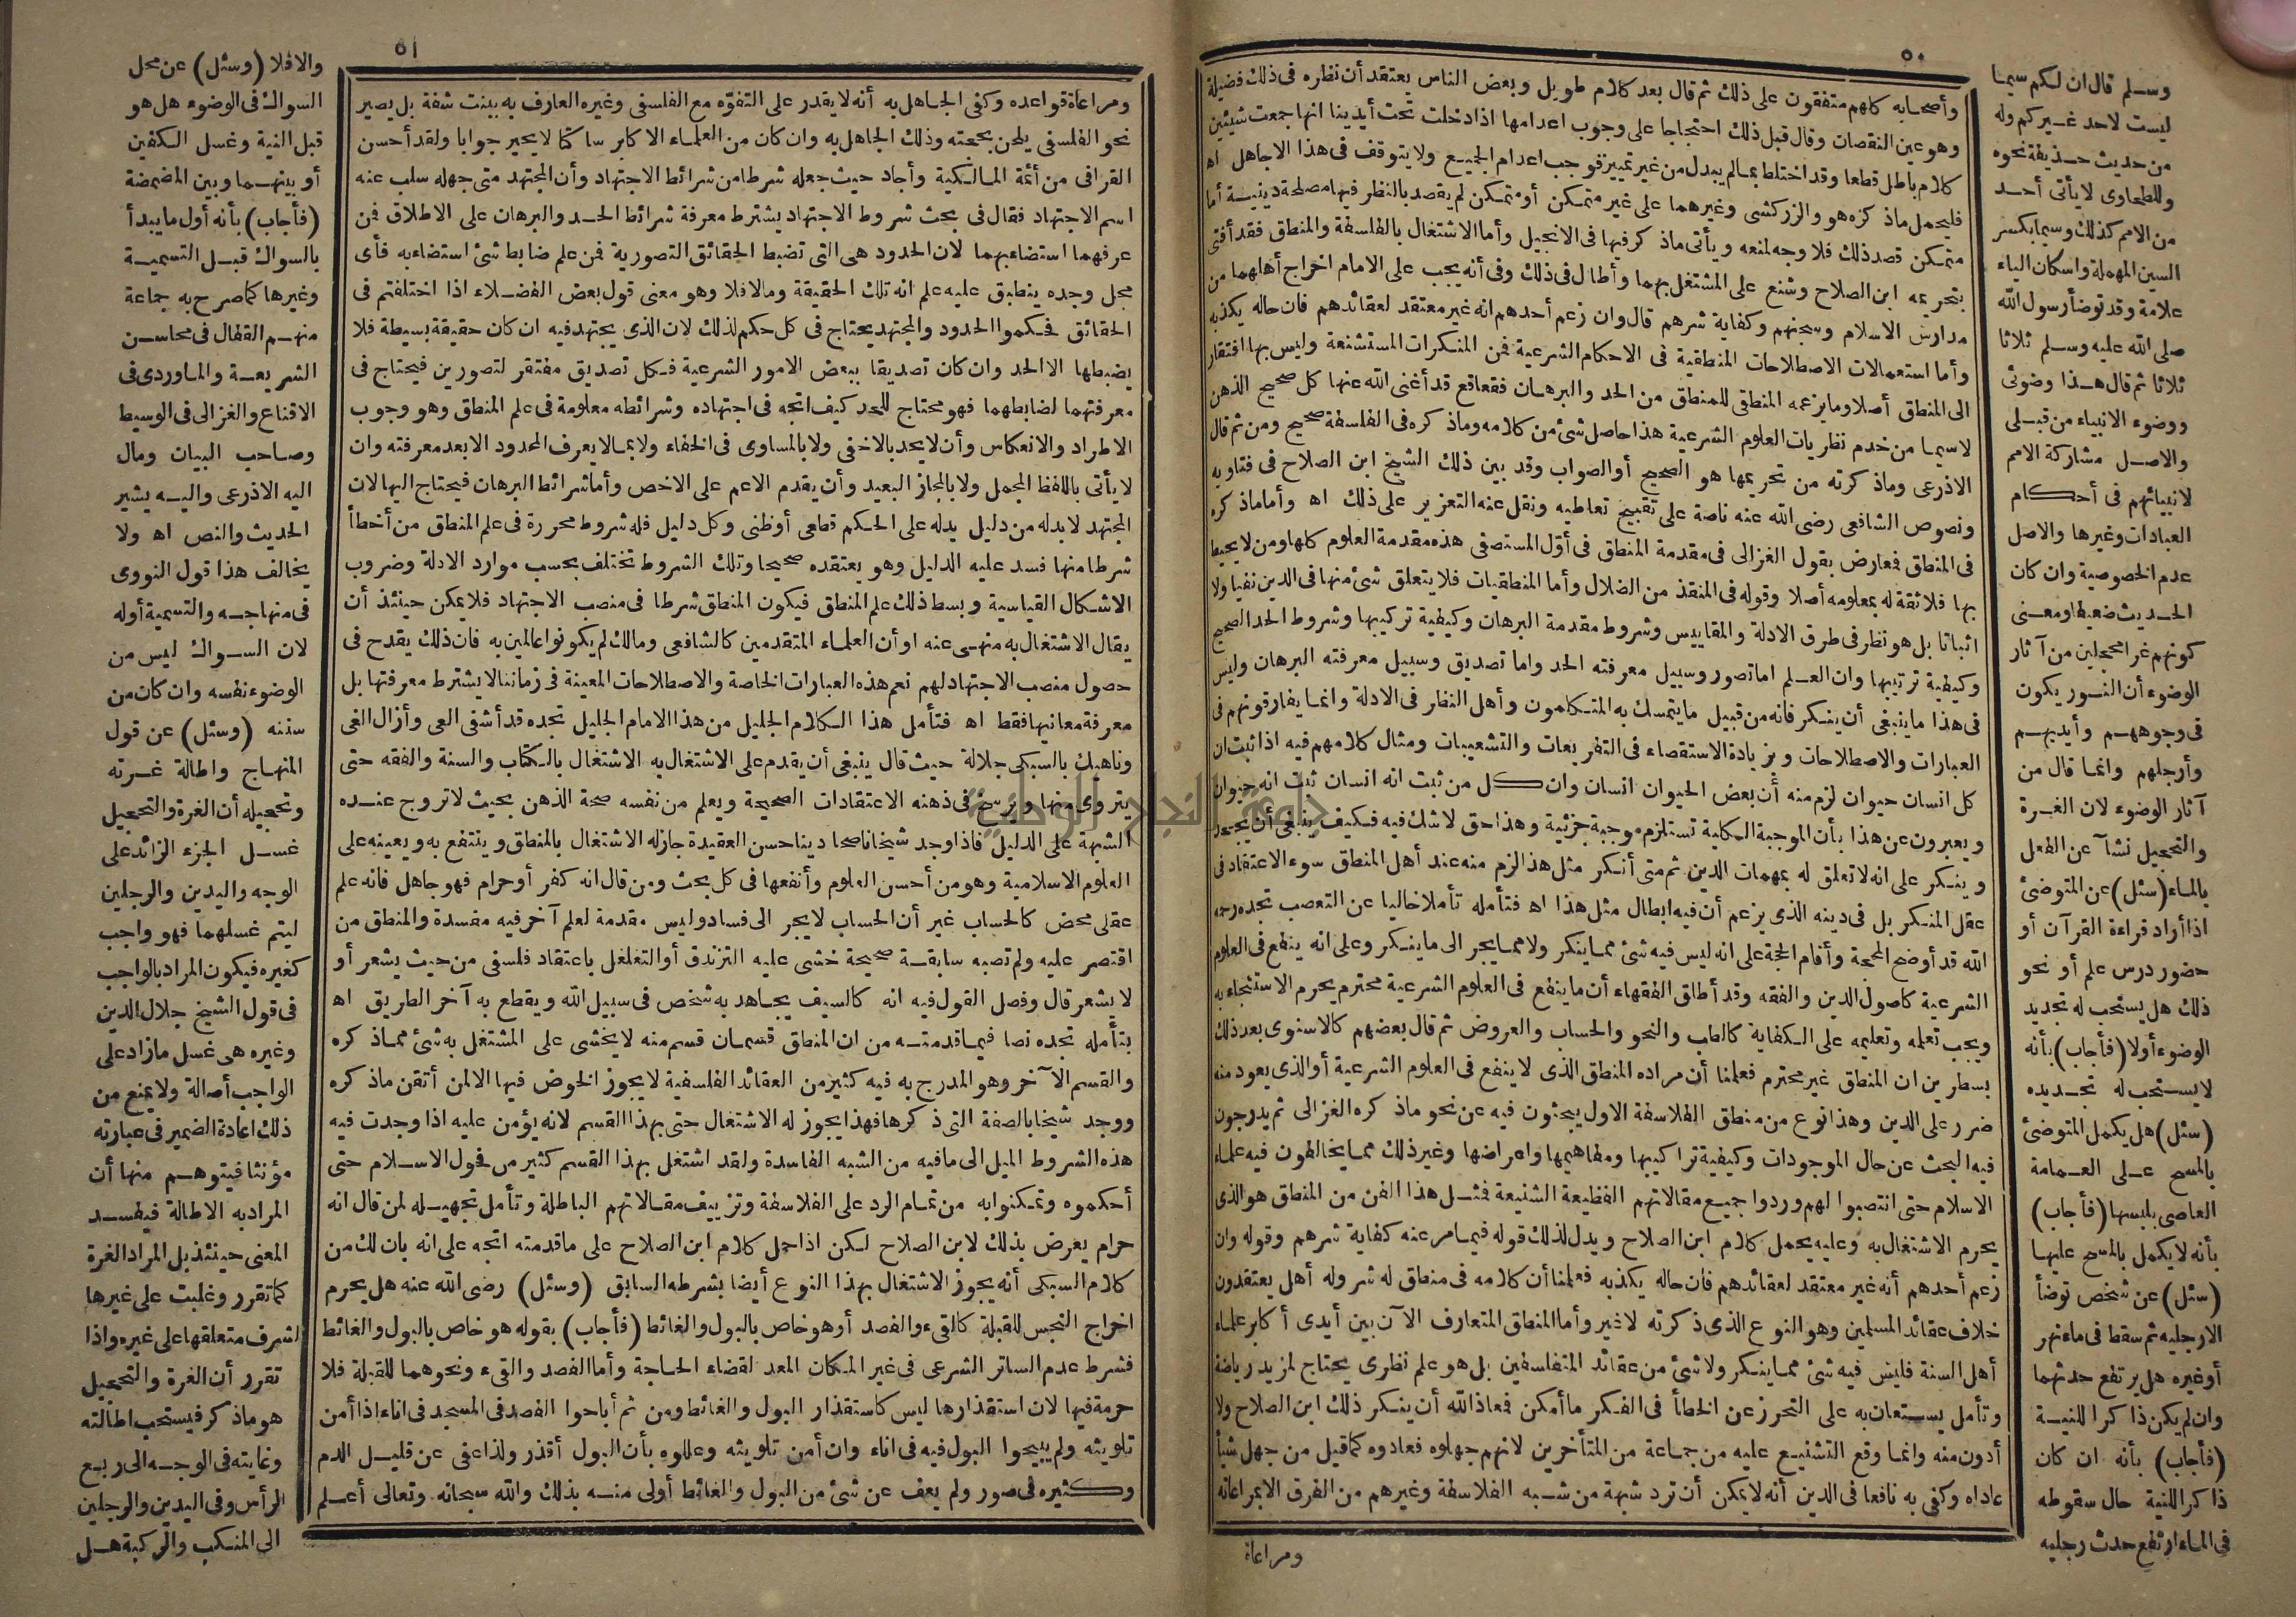 ٥٠
وأصحابه كلهم متفقون على ذلك ثم قال بعد كلام طويل وبعض الناس يعتقد أن نظره فى ذلك فضيلة
وهو عين النقصان وقال قبل ذلك احتجاجا على وجوب اعدامها اذا دخلت تحت أيدينا انها جمعت شيئين
كلام باطل قطعا وقد اختلط بما لم يبدل من غير تمييز فوجب اعدام الجميع ولا يتوقف فى هذا الا جاهل اه
فليحمل ماذكره هو والزركشى وغيرهما على غير متمكن أو متمكن لم يقصد بالنظر فيها مصلحة دينية أما
متمكن قصد ذلك فلا وجه لمنعه ويأتى ماذكر فيها فى الانجيل وأما الاشتغال بالفلسفة والمنطق فقد أفتى
بتحريمه ابن الصلاح وشنع على المشتغل بهما وأطال فى ذلك وفى أنه يجب على الامام اخراج أهلهما من
مدارس الاسلام وسجنهم وكفاية شرهم قال وان زعم أحدهم انه غير معتقد لعقائدهم فان حاله يكذبه
وأما استعمالات الاصطلاحات المنطقية فى الاحكام الشرعية فمن المنكرات المستشنعة وليس بها افتقار
الى المنطق أصلا وما يزعمه المنطقى للمنطق من الحد والبرهان فقعاقع قد أغنى الله عنها كل صحيح الذهن
لاسيما من خدم نظريات العلوم الشرعية هذا حاصل شئ من كلامه وماذكره فى الفلسفة صحيح ومن ثم قال
الاذرعى وماذكرته من تحريمها هو الصحيح أو الصواب وقد بين ذلك الشيخ ابن الصلاح فى فتاويه
ونصوص الشافعى رضى الله عنه ناصة على تقبيح تعاطيه ونقل عنه التعزير على ذلك اه وأما ماذكره
فى المنطق فعارض بقول الغزالى فى مقدمة المنطق فى أوّل المستصفى هذه مقدمة العلوم كلها ومن لا يحيط
بها فلا ثقة له بمعلومه أصلا وقوله فى المنقذ من الضلال وأما المنطقيات فلا يتعلق شئ منها فى الدين نفيا ولا
اثباتا بل هو نظر فى طرق الادلة والمقاييس وشروط مقدمة البرهان وكيفية تركيبها وشروط الحد الصحيح
وكيفية ترتيبها وان العلم اما تصور وسبيل معرفته الحد واما تصديق وسبيل معرفته البرهان وليس
فى هذا ما ينبغى أن ينكر فانه من قبيل ما يتمسك به المتكلمون وأهل النظر فى الادلة وانما يفارقونهم فى
العبارات والاصطلاحات وبزيادة الاستقصاء فى التفريعات والتشعيبات ومثال كلامهم فيه اذا ثبت ان
كل انسان حيوان لزم منه أن بعض الحيوان انسان وان كل من ثبت انه انسان ثبت انه حيوان
ويعبرون عن هذا بأن الموجبة الكلية تستلزم موجبة جزئية وهذا حق لا شك فيه فكيف ينبغى أن يجحد
وينكر على انه لا تعلق له بمهمات الدين ثم متى أنكر مثل هذا لزم منه عند أهل المنطق سوء الاعتقاد فى
عقل المنكر بل فى دينه الذى يزعم أن فيه ابطال مثل هذا اه فتأمله تأملا خاليا عن التعصب تجده رحمه
الله قد أوضح المحجة وأقام الحجة على انه ليس فيه شئ مما ينكر ولا مما يجر الى ما ينكر وعلى انه ينفع فى العلوم
الشرعية كأصول الدين والفقه وقد أطلق الفقهاء أن ما ينفع فى العلوم الشرعية محترم يحرم الاستنجاء به
ويجب تعلمه وتعليمه على الكفاية كالطب والنحو والحساب والعروض ثم قال بعضهم كالاسنوى بعد ذلك
بسطرين ان المنطق غير محترم فعلمنا أن مراده المنطق الذى لا ينفع فى العلوم الشرعية أو الذى يعود منه
ضرر على الدين وهذا نوع من منطق الفلاسفة الاول يبحثون فيه عن نحو ماذكره الغزالى ثم يدرجون
فيه البحث عن حال الموجودات وكيفية تراكيبها ومفاهيمها واعراضها وغير ذلك مما يخالفون فيه علماء
الاسلام حتى انتصبوا لهم وردوا جميع مقالاتهم الفظيعة الشنيعة فمثل هذا الفن من المنطق هو الذى
يحرم الاشتغال به وعليه يحمل كلام ابن الصلاح ويدل لذلك قوله فيما مر عنه كفاية شرهم وقوله وان
زعم أحدهم أنه غير معتقد لعقائدهم فان حاله يكذبه فعلمنا أن كلامه فى منطق له شر وله أهل يعتقدون
خلاف عقائد المسلمين وهو النوع الذى ذكرته لا غير وأما المنطق المتعارف الآن بين أيدى أكابر علماء
أهل السنة فليس فيه شئ مما ينكر ولا شئ من عقائد المتفلسفين بل هو علم نظرى يحتاج لمزيد رياضة
وتأمل يستعان به على التحرز عن الخطأ فى الفكر ما أمكن فعاذ الله أن ينكر ذلك ابن الصلاح ولا
أدون منه وانما وقع التشنيع عليه من جماعة من المتأخرين لانهم جهلوه فعادوه كما قيل من جهل شيأ
عاداه وكفى به نافعا فى الدين أنه لا يمكن أن ترد شبهة من شبه الفلاسفة وغيرهم من الفرق الا بمراعاته
ومراعاة
وسلم قال ان لكم سيما
ليست لاحد غيركم وله
من حديث حذيفة نحوه
وللطحاوى لا يأتى أحد
من الامم كذلك وسيما بكسر
السين المهملة واسكان الياء
علامة وقد توضأ رسول الله
صلى الله عليه وسلم ثلاثا
ثلاثا ثم قال هذا وضوئى
ووضوء الانبياء من قبلى
والاصل مشاركة الامم
لانبيائهم فى أحكام
العبادات وغيرها والاصل
عدم الخصوصية وان كان
الحديث ضعيفا ومعنى
كونهم غرا محجلين من آثار
الوضوء أن النور يكون
فى وجوههم وأيديهم
وأرجلهم وانما قال من
آثار الوضوء لان الغرة
والتحجيل نشآ عن الفعل
بالماء (سئل) عن المتوضئ
اذا أراد قراءة القرآن أو
حضور درس علم أو نحو
ذلك هل يستحب له تجديد
الوضوء أولا (فأجاب) بأنه
لا يستحب له تجديده
(سئل) هل يكمل المتوضئ
بالمسح على العمامة
العاصى بلبسها (فأجاب)
بأنه لا يكمل بالمسح عليها
(سئل) عن شخص توضأ
الا رجليه ثم سقط فى ماء نهر
أو غيره هل يرتفع حدثهما
وان لم يكن ذاكرا للنية
(فأجاب) بأنه ان كان
ذاكرا للنية حال سقوطه
فى الماء ارتفع حدث رجليه
٥١
ومراعاة قواعده وكفى الجاهل به أنه لا يقدر على التفوّه مع الفلسفى وغيره العارف به ببنت شفة بل يصير
نحو الفلسفى يلحن بحجته وذلك الجاهل به وان كان من العلماء الاكابر ساكتا لا يحير جوابا ولقد أحسن
القرافى من أئمة المالكية وأجاد حيث جعله شرطا من شرائط الاجتهاد وأن المجتهد متى جهله سلب عنه
اسم الاجتهاد فقال فى بحث شروط الاجتهاد يشترط معرفة شرائط الحد والبرهان على الاطلاق فمن
عرفهما استضاء بهما لان الحدود هى التى تضبط الحقائق التصورية فمن علم ضابط شئ استضاء به فأى
محل وجده ينطبق عليه علم انه تلك الحقيقة ومالا فلا وهو معنى قول بعض الفضلاء اذا اختلفتم فى
الحقائق فحكموا الحدود والمجتهد يحتاج فى كل حكم لذلك لان الذى يجتهد فيه ان كان حقيقة بسيطة فلا
يضبطها الا الحد وان كان تصديقا ببعض الامور الشرعية فكل تصديق مفتقر لتصورين فيحتاج فى
معرفتهما لضابطهما فهو محتاج للحد كيف اتجه فى اجتهاده وشرائطه معلومة فى علم المنطق وهو وجوب
الاطراد والانعكاس وأن لا يحد بالاخفى ولا بالمساوى فى الخفاء ولا بما لا يعرف المحدود الا بعد معرفته وان
لا يأتى باللفظ المجمل ولا بالمجاز البعيد وأن يقدم الاعم على الاخص وأما شرائط البرهان فيحتاج اليها لان
المجتهد لا بد له من دليل يدله على الحكم قطعى أو ظنى وكل دليل فله شروط محررة فى علم المنطق من أخطأ
شرطا منها فسد عليه الدليل وهو يعتقده صحيحا وتلك الشروط تختلف بحسب موارد الادلة وضروب
الاشكال القياسية وبسط ذلك علم المنطق فيكون المنطق شرطا فى منصب الاجتهاد فلا يمكن حينئذ أن
يقال الاشتغال به منهى عنه او أن العلماء المتقدمين كالشافعى ومالك لم يكونوا عالمين به فان ذلك يقدح فى
حصول منصب الاجتهاد لهم نعم هذه العبارات الخاصة والاصطلاحات المعينة فى زماننا لا يشترط معرفتها بل
معرفة معانيها فقط اه فتأمل هذا الكلام الجليل من هذا الامام الجليل تجده قد أشفى العى وأزال الغى
وناهيك بالسبكى جلالة حيث قال ينبغى أن يقدم على الاشتغال به الاشتغال بالكتاب والسنة والفقه حتى
يتروى منها ويرسخ فى ذهنه الاعتقادات الصحيحة ويعلم من نفسه صحة الذهن بحيث لا تروج عنده
الشبهة على الدليل فاذا وجد شيخا ناصحا دينا حسن العقيدة جاز له الاشتغال بالمنطق وينتفع به ويعينه على
العلوم الاسلامية وهو من أحسن العلوم وأنفعها فى كل بحث ومن قال انه كفر أو حرام فهو جاهل فانه علم
عقلى محض كالحساب غير أن الحساب لا يجر الى فساد وليس مقدمة لعلم آخر فيه مفسدة والمنطق من
اقتصر عليه ولم تصبه سابقة صحيحة خشى عليه التزندق أو التغلغل باعتقاد فلسفى من حيث يشعر أو
لا يشعر قال وفصل القول فيه انه كالسيف يجاهد به شخص فى سبيل الله ويقطع به آخر الطريق اه
بتأمله تجده نصا فيما قدمته من ان المنطق قسمان قسم منه لا يخشى على المشتغل به شئ مماذكره
والقسم الآخر وهو المدرج به فيه كثير من العقائد الفلسفية لا يجوز الخوض فيها الا لمن أتقن ماذكره
ووجد شيخا بالصفة التى ذكرها فهذا يجوز له الاشتغال حتى بهذا القسم لانه يؤمن عليه اذا وجدت فيه
هذه الشروط الميل الى ما فيه من الشبه الفاسدة ولقد اشتغل بهذا القسم كثير من فحول الاسلام حتى
أحكموه وتمكنوا به من تمام الرد على الفلاسفة وتزييف مقالاتهم الباطلة وتأمل تجهيله لمن قال انه
حرام يعرض بذلك لابن الصلاح لكن اذا حمل كلام ابن الصلاح على ماقدمته اتجه على انه بان لك من
كلام السبكى أنه يجوز الاشتغال بهذا النوع أيضا بشرطه السابق (وسئل) رضى الله عنه هل يحرم
اخراج النجس للقبلة كالقىء والفصد أو هو خاص بالبول والغائط (فأجاب) بقوله هو خاص بالبول والغائط
فشرط عدم الساتر الشرعى فى غير المكان المعد لقضاء الحاجة وأما الفصد والقىء ونحوهما للقبلة فلا
حرمة فيها لان استقذارها ليس كاستقذار البول والغائط ومن ثم أباحوا الفصد فى المسجد فى اناء اذا أمن
تلويثه ولم يبيحوا البول فيه فى اناء وان أمن تلويثه وعللوه بأن البول أقذر ولذا عفى عن قليل الدم
وكثيره فى صور ولم يعف عن شئ من البول والغائط أولى منه بذلك والله سبحانه وتعالى أعلم
والا فلا (وسئل) عن محل
السواك فى الوضوء هل هو
قبل النية وغسل الكفين
أو بينهما وبين المضمضة
(فأجاب) بأنه أول ما يبدأ
بالسواك قبل التسمية
وغيرها كما صرح به جماعة
منهم القفال فى محاسن
الشريعة والماوردى فى
الاقناع والغزالى فى الوسيط
وصاحب البيان ومال
اليه الاذرعى واليه يشير
الحديث والنص اه ولا
يخالف هذا قول النووى
فى منهاجه والتسمية أوله
لان السواك ليس من
الوضوء نفسه وان كان من
سننه (وسئل) عن قول
المنهاج واطالة غرته
وتحجيله أن الغرة والتحجيل
غسل الجزء الزائد على
الوجه واليدين والرجلين
ليتم غسلهما فهو واجب
كغيره فيكون المراد بالواجب
فى قول الشيخ جلال الدين
وغيره هى غسل ما زاد على
الواجب أصالة ولا يمنع من
ذلك اعادة الضمير فى عبارته
مؤنثا فيتوهم منها أن
المراد به الاطالة فيفسد
المعنى حينئذ بل المراد الغرة
كما تقرر وغلبت على غيرها
لشرف متعلقها على غيره واذا
تقرر أن الغرة والتحجيل
هو ماذكر فيستحب اطالته
وغايته فى الوجه الى ربع
الرأس وفى اليدين والرجلين
الى المنكب والركبة هل